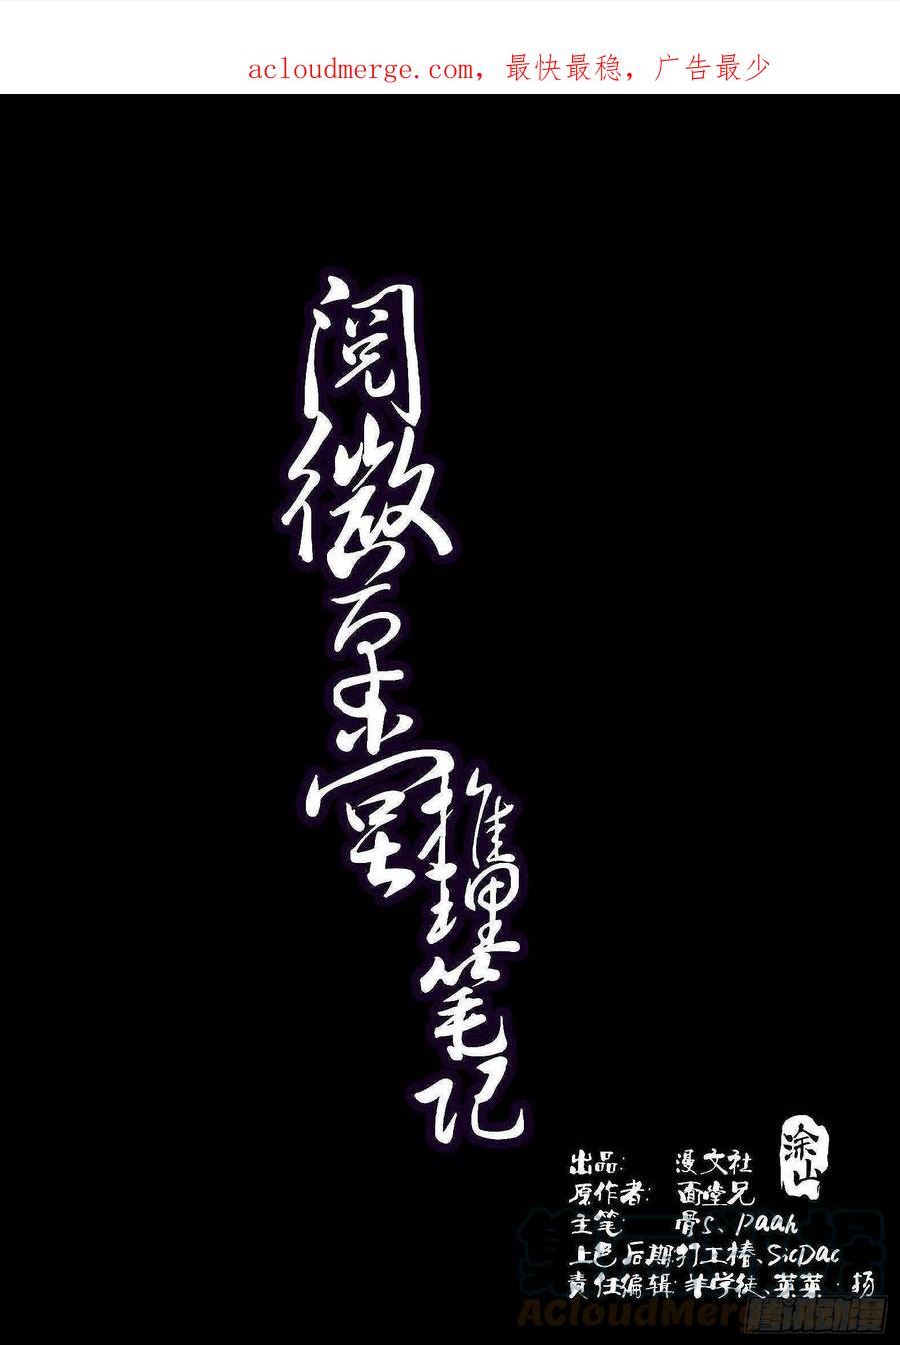 acloudmerge.com，最快最稳，广告最少
阅微草堂推理笔记
涂山
出品: 漫文社
原作者: 面堂兄
主笔: 骨S、paah
上色后期:打工椿、SicDac
責任编辑:羊学徒、菜菜·扬
AcloudMerge.com
腾讯动漫